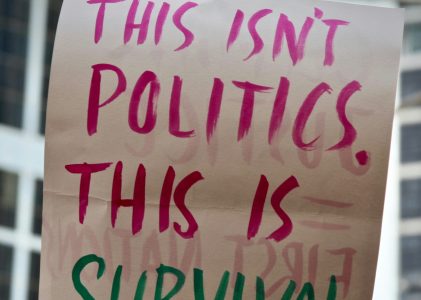 THIS ISN'T
POLITICS.
THIS IS
SURVIVAL